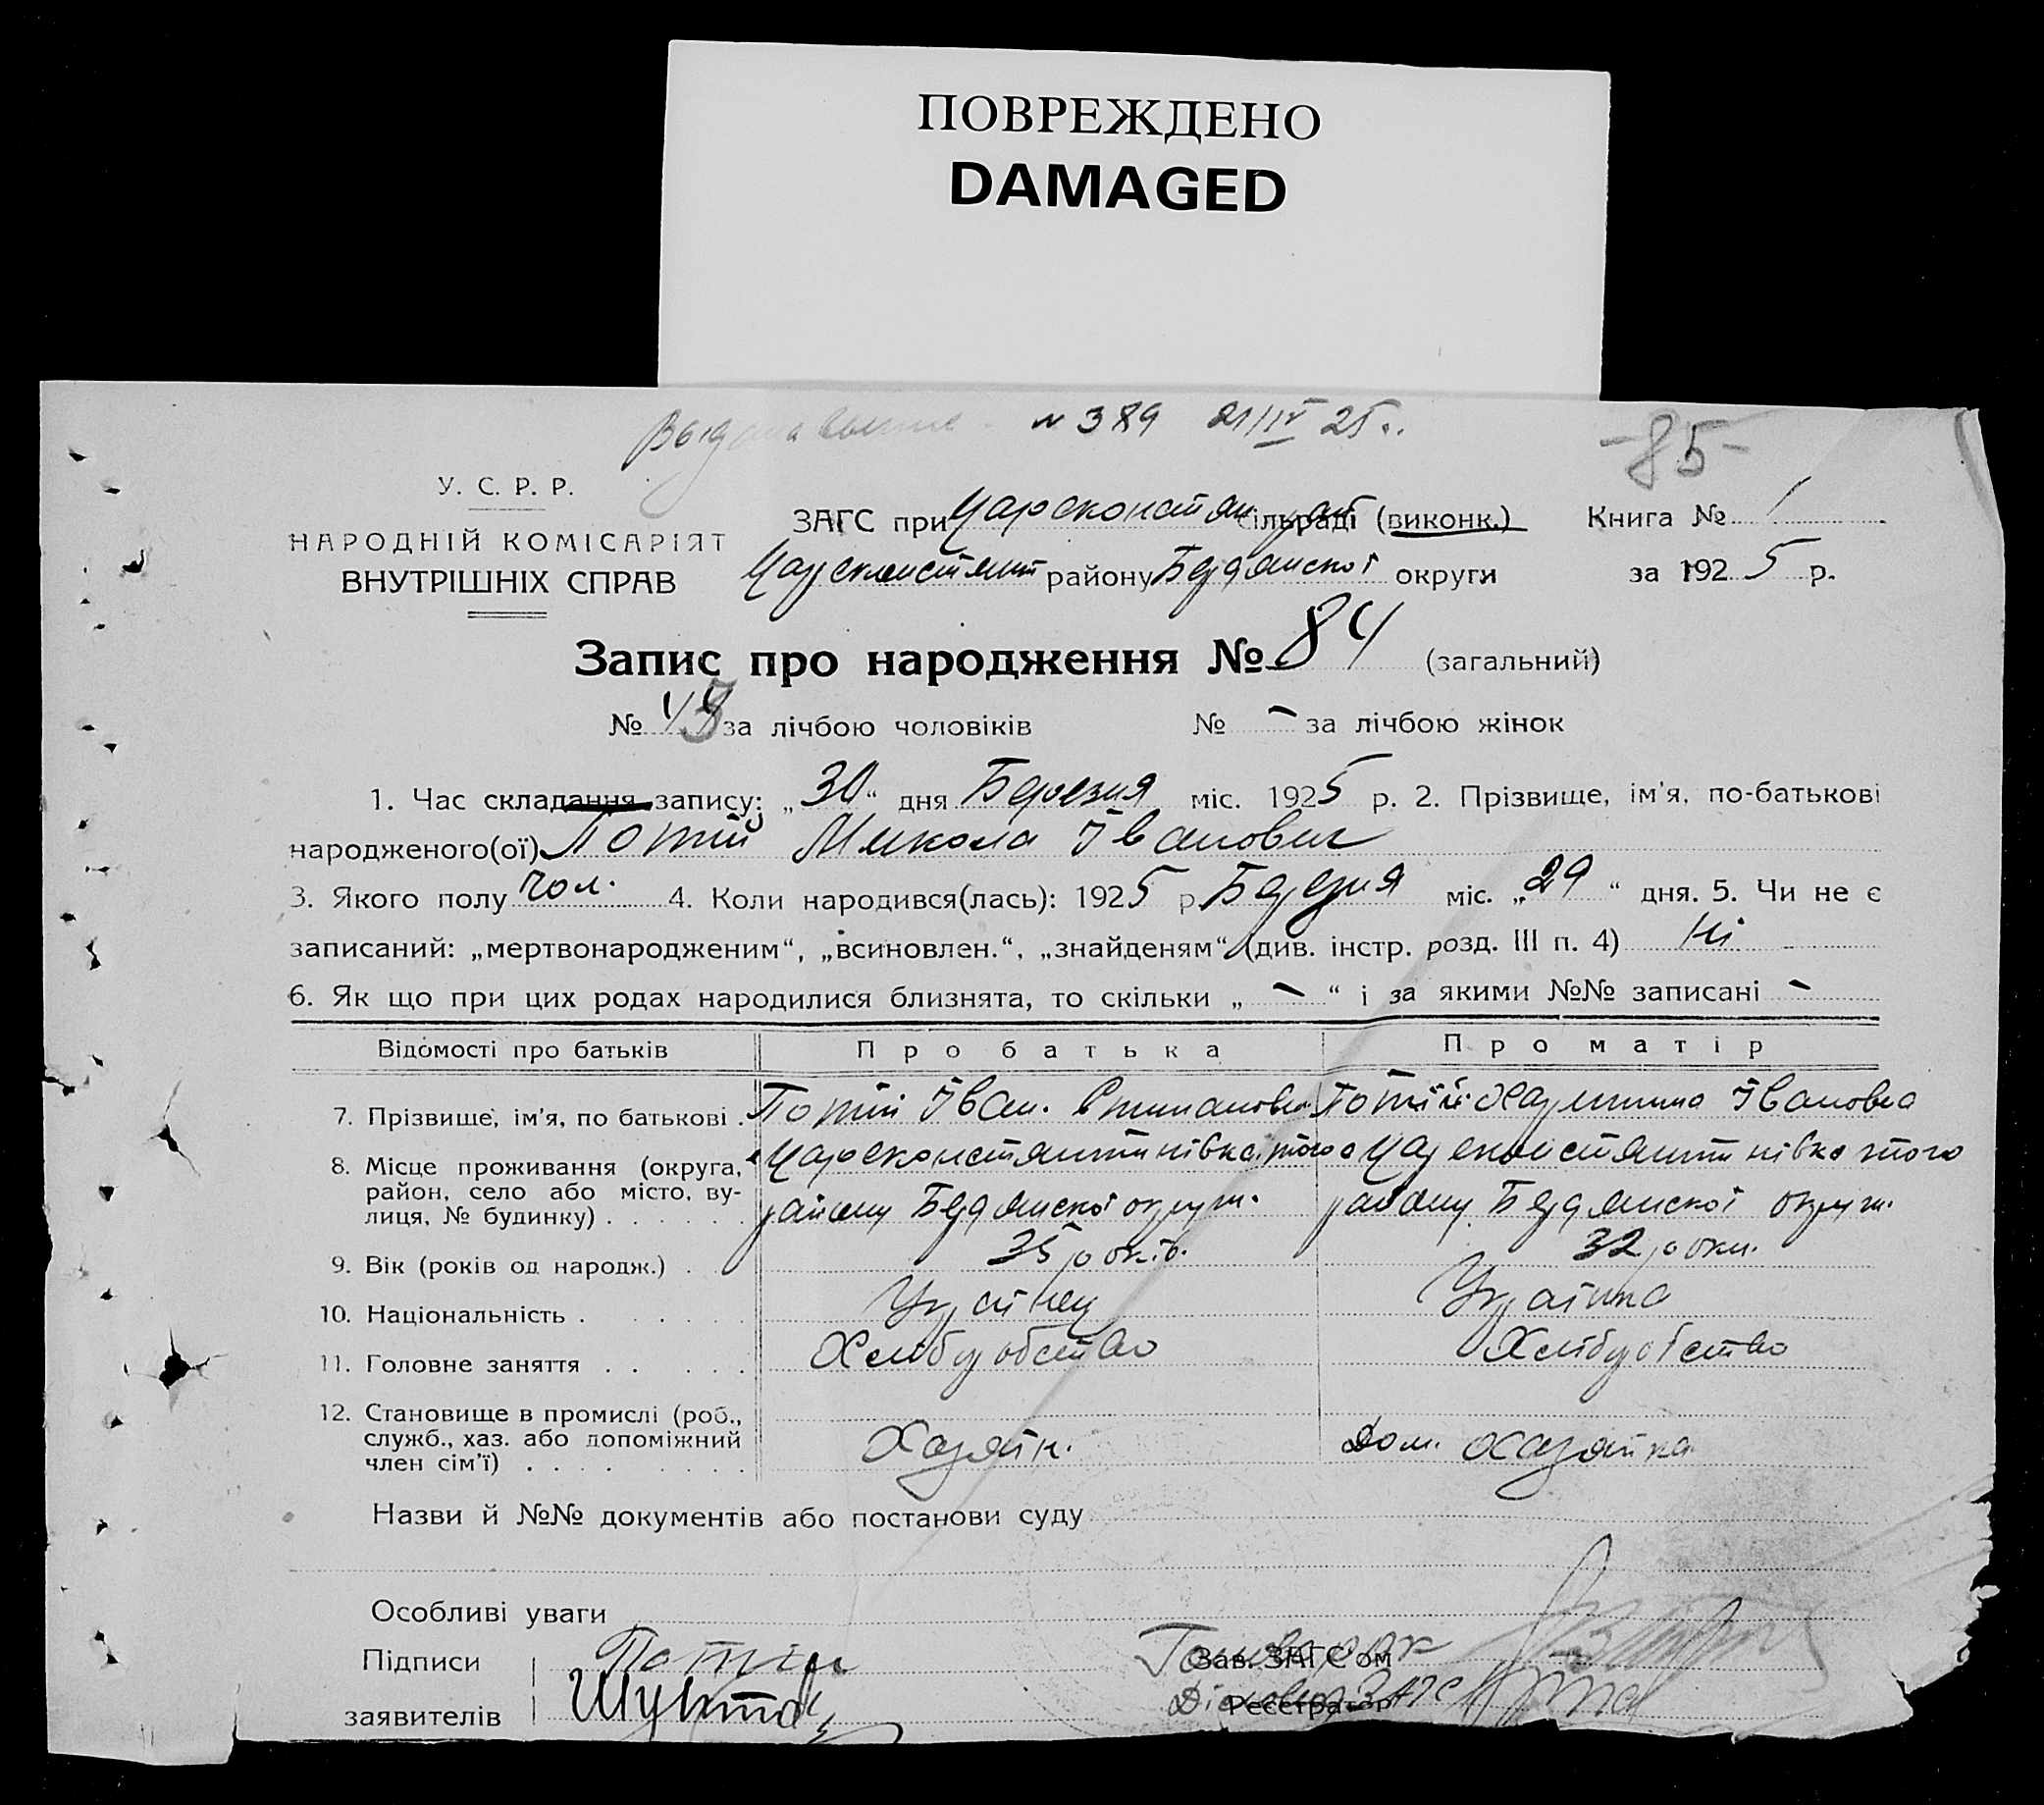 ПОВРЕЖДЕНО
DAMAGED
№ 389 21/IV 25..
-85-
У. С. Р. Р.
НАРОДНІЙ КОМІСАРІЯТ
ВНУТРІШНІХ СПРАВ
ЗАГС при Царекон­стян сільраді (виконк.) Книга № 1
Цареконстянт району Бердянскої округи за 1925 р.
Запис про народження № 84 (загальний)
№ 43 за лічбою чоловіків № – за лічбою жінок
1. Час складання запису: „30“ дня Березня міс. 1925 р. 2. Прізвище, ім'я, по-батькові
народженого(ої) Потій Микола Іванович
3. Якого полу чол. 4. Коли народився(лась): 1925 р. Березня міс. „29“ дня. 5. Чи не є
записаний: „мертвонародженим“, „всиновлен.“, „знайденям“ (див. інстр. розд. III п. 4) Ні
6. Як що при цих родах народилися близнята, то скільки „–“ і за якими №№ записані –
Відомості про батьків Про батька Про матір
7. Прізвище, ім'я, по батькові . Потій Іван. Потій Івановна
8. Місце проживання (округа, район, село або місто, вулиця, № будинку) . . . . . . Царэконстянтинівка того Царэконстянтинівка того
району Бердянскої округ. району Бердянскої округ.
9. Вік (років од народж.) . . 35 років. 32 роки.
10. Національність . . . . . . Українец Українка
11. Головне заняття . . . . . Хлібробство Хлібробство
12. Становище в промислі (роб., служб., хаз. або допоміжний член сім'ї) . . . . . . . . Хазяїн. Дом. хазяйка
Назви й №№ документів або постанови суду
Особливі уваги
Підписи Потій Зав. ЗАГС'ом
заявителів Реєстратор